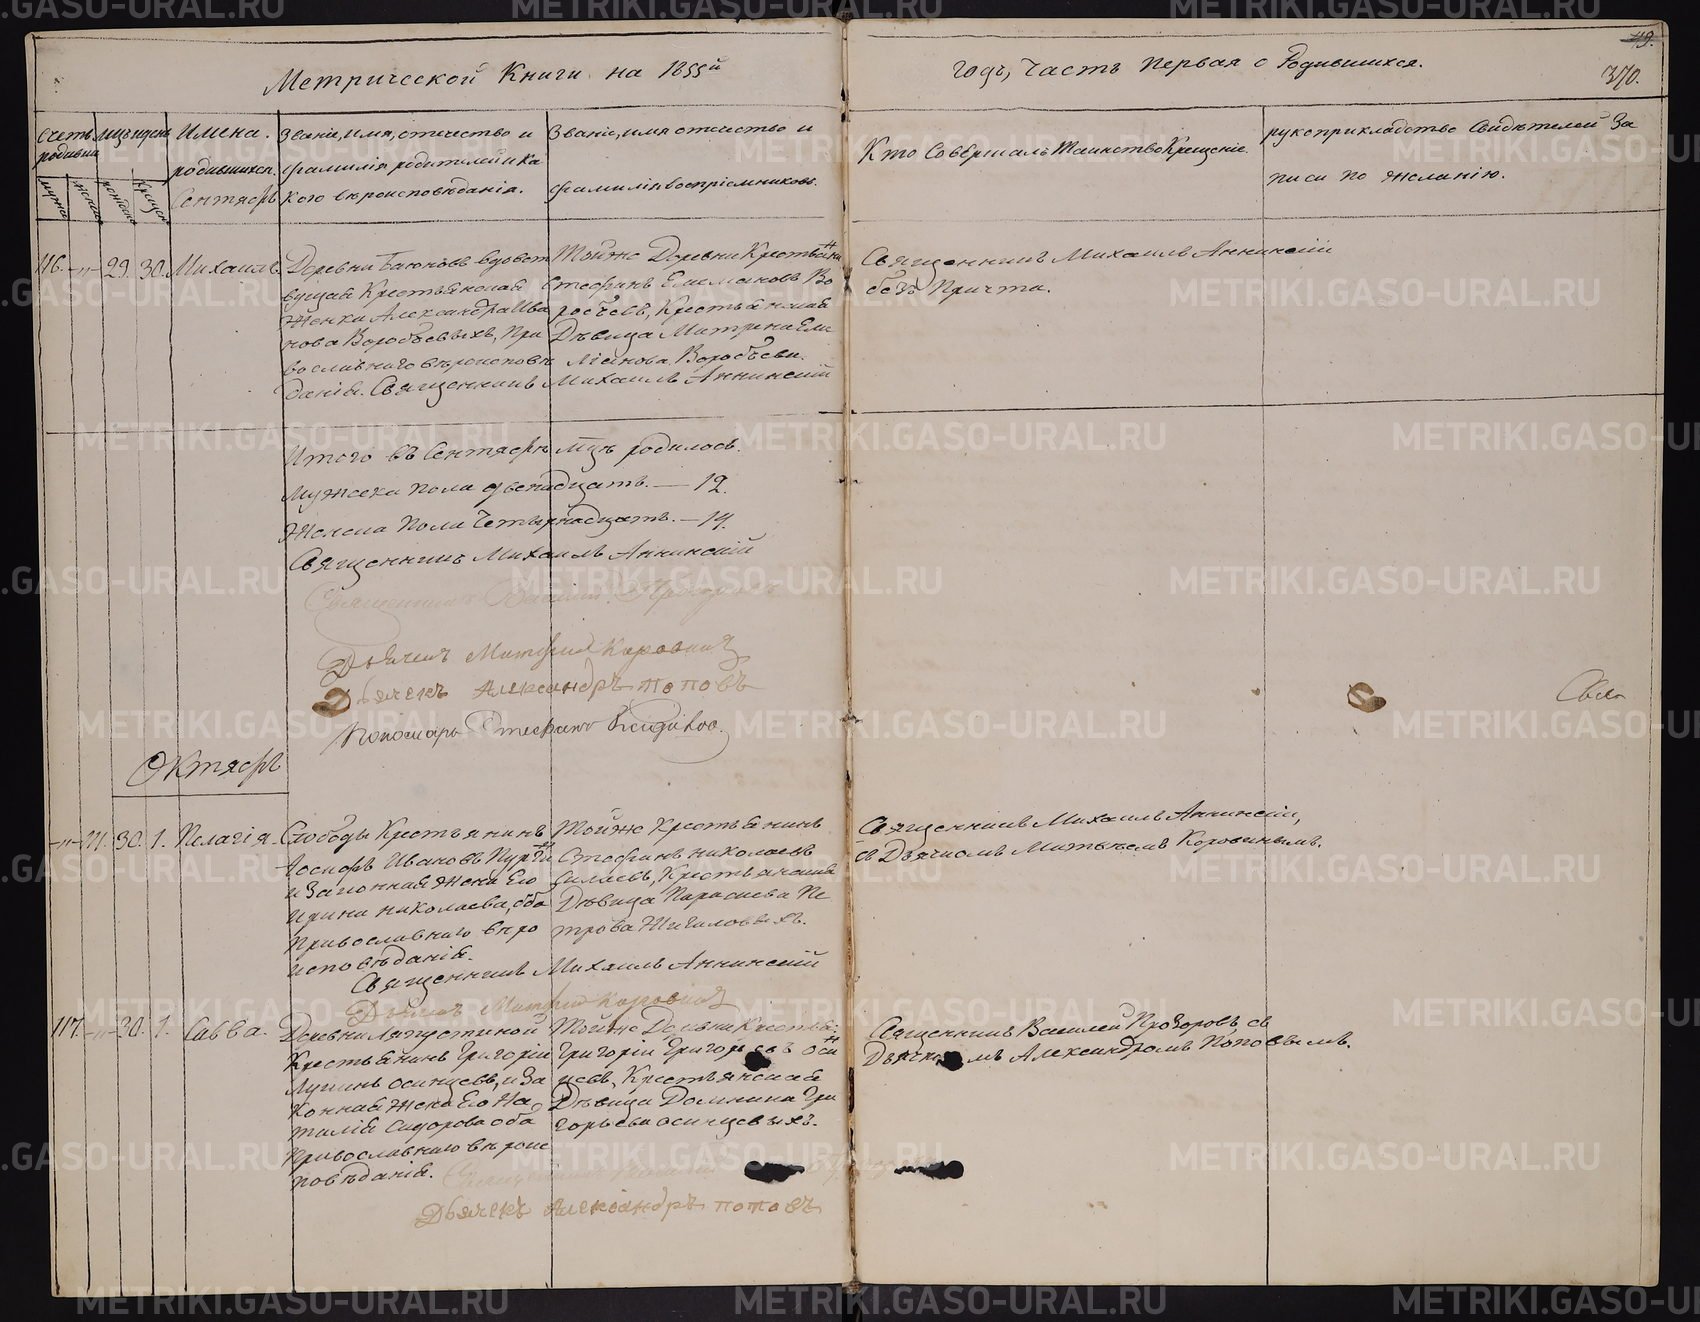 Метрической Книги на 1855й
годъ, Часть первая о Родившихся.
370.
Счетъ родивш
мцъ и день
Имена родившихся.
Сентябрь
Званіе, имя, отчество и
фамилія родителей и ка
кого вѣроисповѣданія.
Званіе, имя отчество и
фамилія воспріемниковъ.
Кто Совершалъ Таинство Крещенія.
рукоприкладство Свидѣтелей За
писи по желанію.
116. -„- 29. 30. Михаилъ.
Деревни Баюковъ вдовст
вущая Крестьянская
Женка Александра Ива
нова Воробьевыхъ, Пра
вославнаго вѣроисповѣ
данія. Священникъ Михаилъ Аннинскій
Тойже Деревни Крестьянинъ
Стефанъ Емельяновъ Во
робьевъ, Крестьянская
Дѣвица Матрена Еме
ліянова Воробьева.
Священникъ Михаилъ Аннинскій
безъ Причта.
Итого въ Сентябрѣ мцѣ родилось.
Мужска пола двенадцать. — 12.
Женска Пола Четырнадцать. — 14.
Священникъ Михаилъ Аннинскій
Священникъ Василій Прозоровъ
Дьячекъ Матфей Коровинъ
Дьячекъ Александръ поповъ
Пономарь Стефанъ
Свя
Октябрь
-„- 30. 1. Пелагія.
Слободы Крестьянинъ
Іосифъ Ивановъ
и Законная Жена Его
Ирина Николаева, оба
Православнаго вѣро
исповѣданія.
Священникъ Михаилъ Аннинскій
Дьячекъ Матфей Коровинъ
Тойже Крестьянинъ
Стефанъ Николаевъ
Крестьянская
Дѣвица Параскева Пе
трова Жигаловыхъ.
Священникъ Михаилъ Аннинскій,
съ Дьячкомъ Матвѣемъ Коровинымъ.
117. -„- 30. 1. Савва.
Деревни Ляпустиной
Крестьянинъ Григорій
Лукинъ Осинцевъ, и За
конная Жена Его На
талія Сидорова оба
Православнаго вѣроис
повѣданія.
Тойже Деревни Крестьян:
Григорій Григорьевъ Осин
цевъ, Крестьянская
Дѣвица Домнина Гри
горьева Осинцевыхъ.
Священникъ Василей Прозоровъ съ
Дьячкомъ Александромъ Поповымъ.
Дьячекъ Александръ поповъ
METRIKI.GASO-URAL.RU